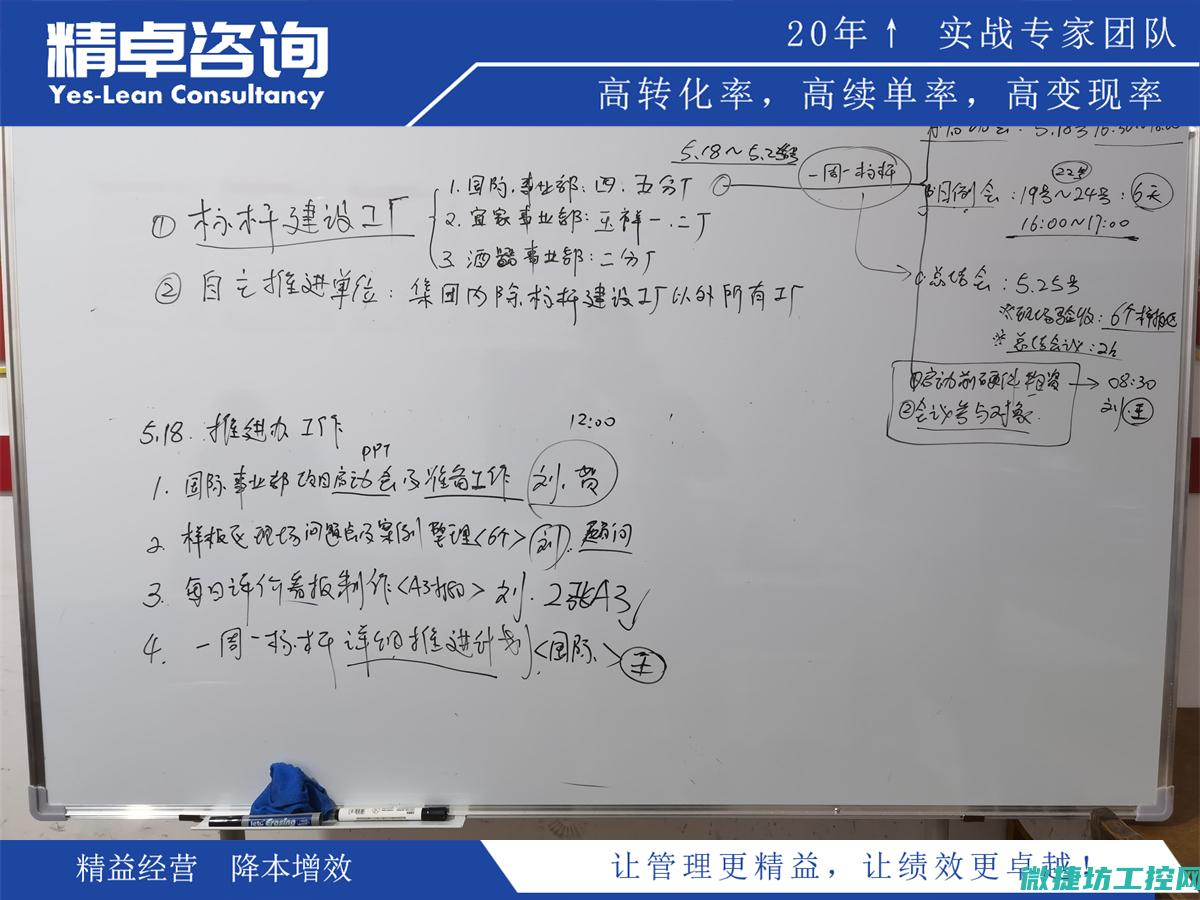 精卓咨询
Yes-Lean Consultancy
20年↑ 实战专家团队
高转化率，高续单率，高变现率
5.18～5.25号
一周一标杆
① 标杆建设工厂
1. 国际事业部：四.五分厂
2. 宜家事业部：玉祥一.二厂
3. 酒器事业部：二分厂
② 自主推进单位：集团内除标杆建设工厂以外所有工厂
22号
日例会：19号～24号：6天
16:00～17:00
总结会：5.25号
※现场验收：6个样板区
※总结会议：2h
①启动前硬件投资 → 08:30
②会议参与对象
刘.王
5.18. 推进办工作
12:00
PPT
1. 国际事业部项目启动会及准备工作 刘.贺
2. 样板区现场问题点及案例整理<6个> 刘.顾问
3. 每日评价看板制作<A3打印> 刘. 2张A3
4. 一周一标杆详细推进计划<国际> 王
精益经营 降本增效
让管理更精益，让绩效更卓越！
微捷坊工控网